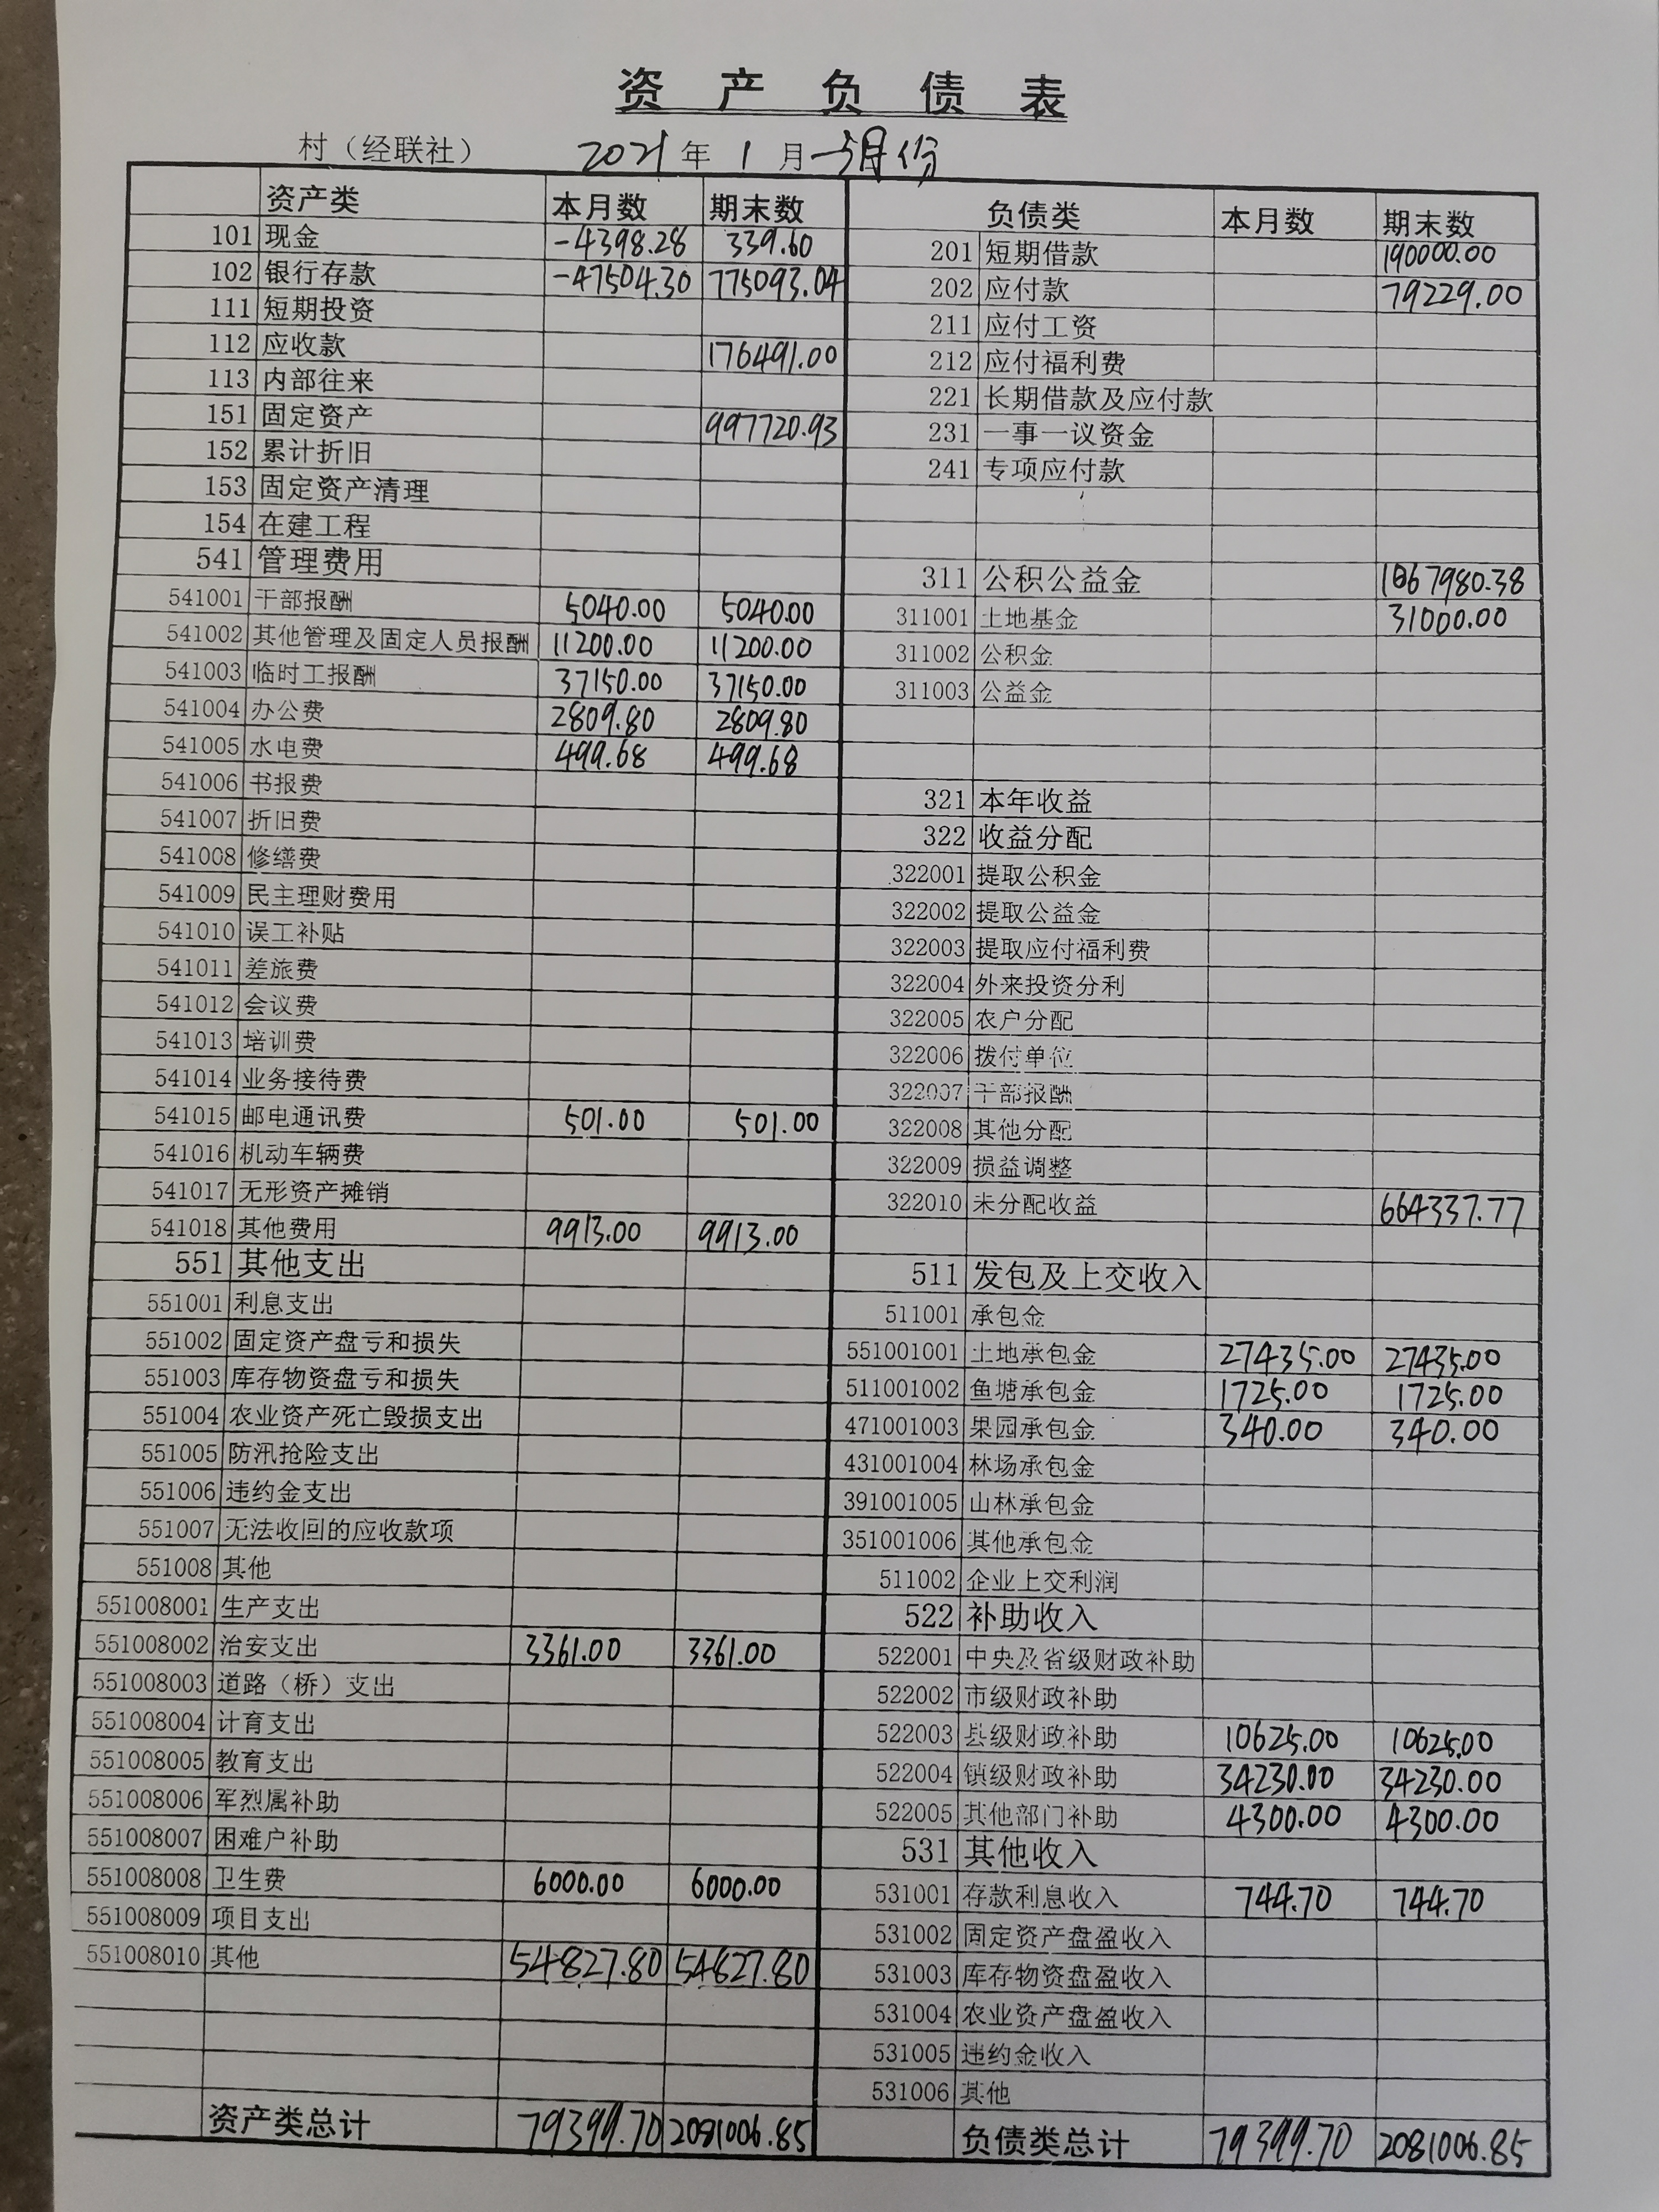 资产负债表
村（经联社） 2021年1月—3月份
资产类 本月数 期末数 负债类 本月数 期末数
101 现金 -4398.28 339.60 201 短期借款 190000.00
102 银行存款 -47504.30 775093.04 202 应付款 79229.00
111 短期投资 211 应付工资
112 应收款 176491.00 212 应付福利费
113 内部往来 221 长期借款及应付款
151 固定资产 997720.93 231 一事一议资金
152 累计折旧 241 专项应付款
153 固定资产清理
154 在建工程
541 管理费用 311 公积公益金 1067980.38
541001 干部报酬 5040.00 5040.00 311001 土地基金 31000.00
541002 其他管理及固定人员报酬 11200.00 11200.00 311002 公积金
541003 临时工报酬 37150.00 37150.00 311003 公益金
541004 办公费 2809.80 2809.80
541005 水电费 499.68 499.68
541006 书报费 321 本年收益
541007 折旧费 322 收益分配
541008 修缮费 322001 提取公积金
541009 民主理财费用 322002 提取公益金
541010 误工补贴 322003 提取应付福利费
541011 差旅费 322004 外来投资分利
541012 会议费 322005 农户分配
541013 培训费 322006 拨付单位
541014 业务接待费 322007 干部报酬
541015 邮电通讯费 501.00 501.00 322008 其他分配
541016 机动车辆费 322009 损益调整
541017 无形资产摊销 322010 未分配收益 664337.77
541018 其他费用 9913.00 9913.00
551 其他支出 511 发包及上交收入
551001 利息支出 511001 承包金
551002 固定资产盘亏和损失 551001001 土地承包金 27435.00 27435.00
551003 库存物资盘亏和损失 511001002 鱼塘承包金 1725.00 1725.00
551004 农业资产死亡毁损支出 471001003 果园承包金 340.00 340.00
551005 防汛抢险支出 431001004 林场承包金
551006 违约金支出 391001005 山林承包金
551007 无法收回的应收款项 351001006 其他承包金
551008 其他 511002 企业上交利润
551008001 生产支出 522 补助收入
551008002 治安支出 3361.00 3361.00 522001 中央及省级财政补助
551008003 道路（桥）支出 522002 市级财政补助
551008004 计育支出 522003 县级财政补助 10625.00 10625.00
551008005 教育支出 522004 镇级财政补助 34230.00 34230.00
551008006 军烈属补助 522005 其他部门补助 4300.00 4300.00
551008007 困难户补助 531 其他收入
551008008 卫生费 6000.00 6000.00 531001 存款利息收入 744.70 744.70
551008009 项目支出 531002 固定资产盘盈收入
551008010 其他 54827.80 54827.80 531003 库存物资盘盈收入
531004 农业资产盘盈收入
531005 违约金收入
531006 其他
资产类总计 79399.70 2081006.85 负债类总计 79399.70 2081006.85